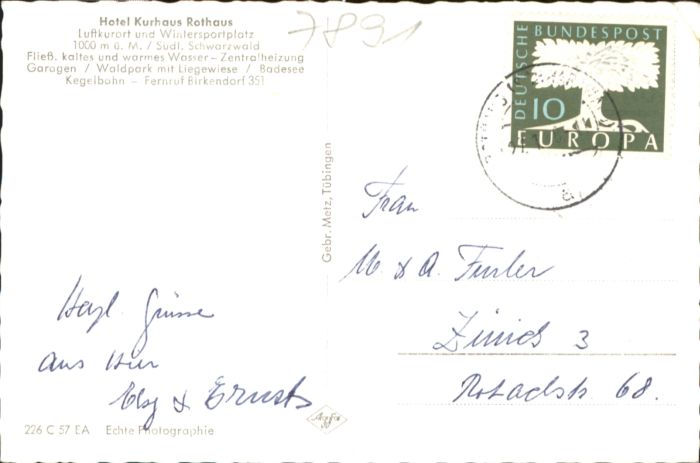 Hotel Kurhaus Rothaus
Luftkurort und Wintersportplatz
1000 m ü. M. / Südl. Schwarzwald
Fließ. kaltes und warmes Wasser – Zentralheizung
Garagen / Waldpark mit Liegewiese / Badesee
Kegelbahn – Fernruf Birkendorf 351
7891
DEUTSCHE BUNDESPOST
10
EUROPA
Gebr. Metz, Tübingen
Frau
M. & A.
Zürich 3
68.
Herzl. Grüsse
aus hier
& Ernst
226 C 57 EA Echte Photographie
Agfa